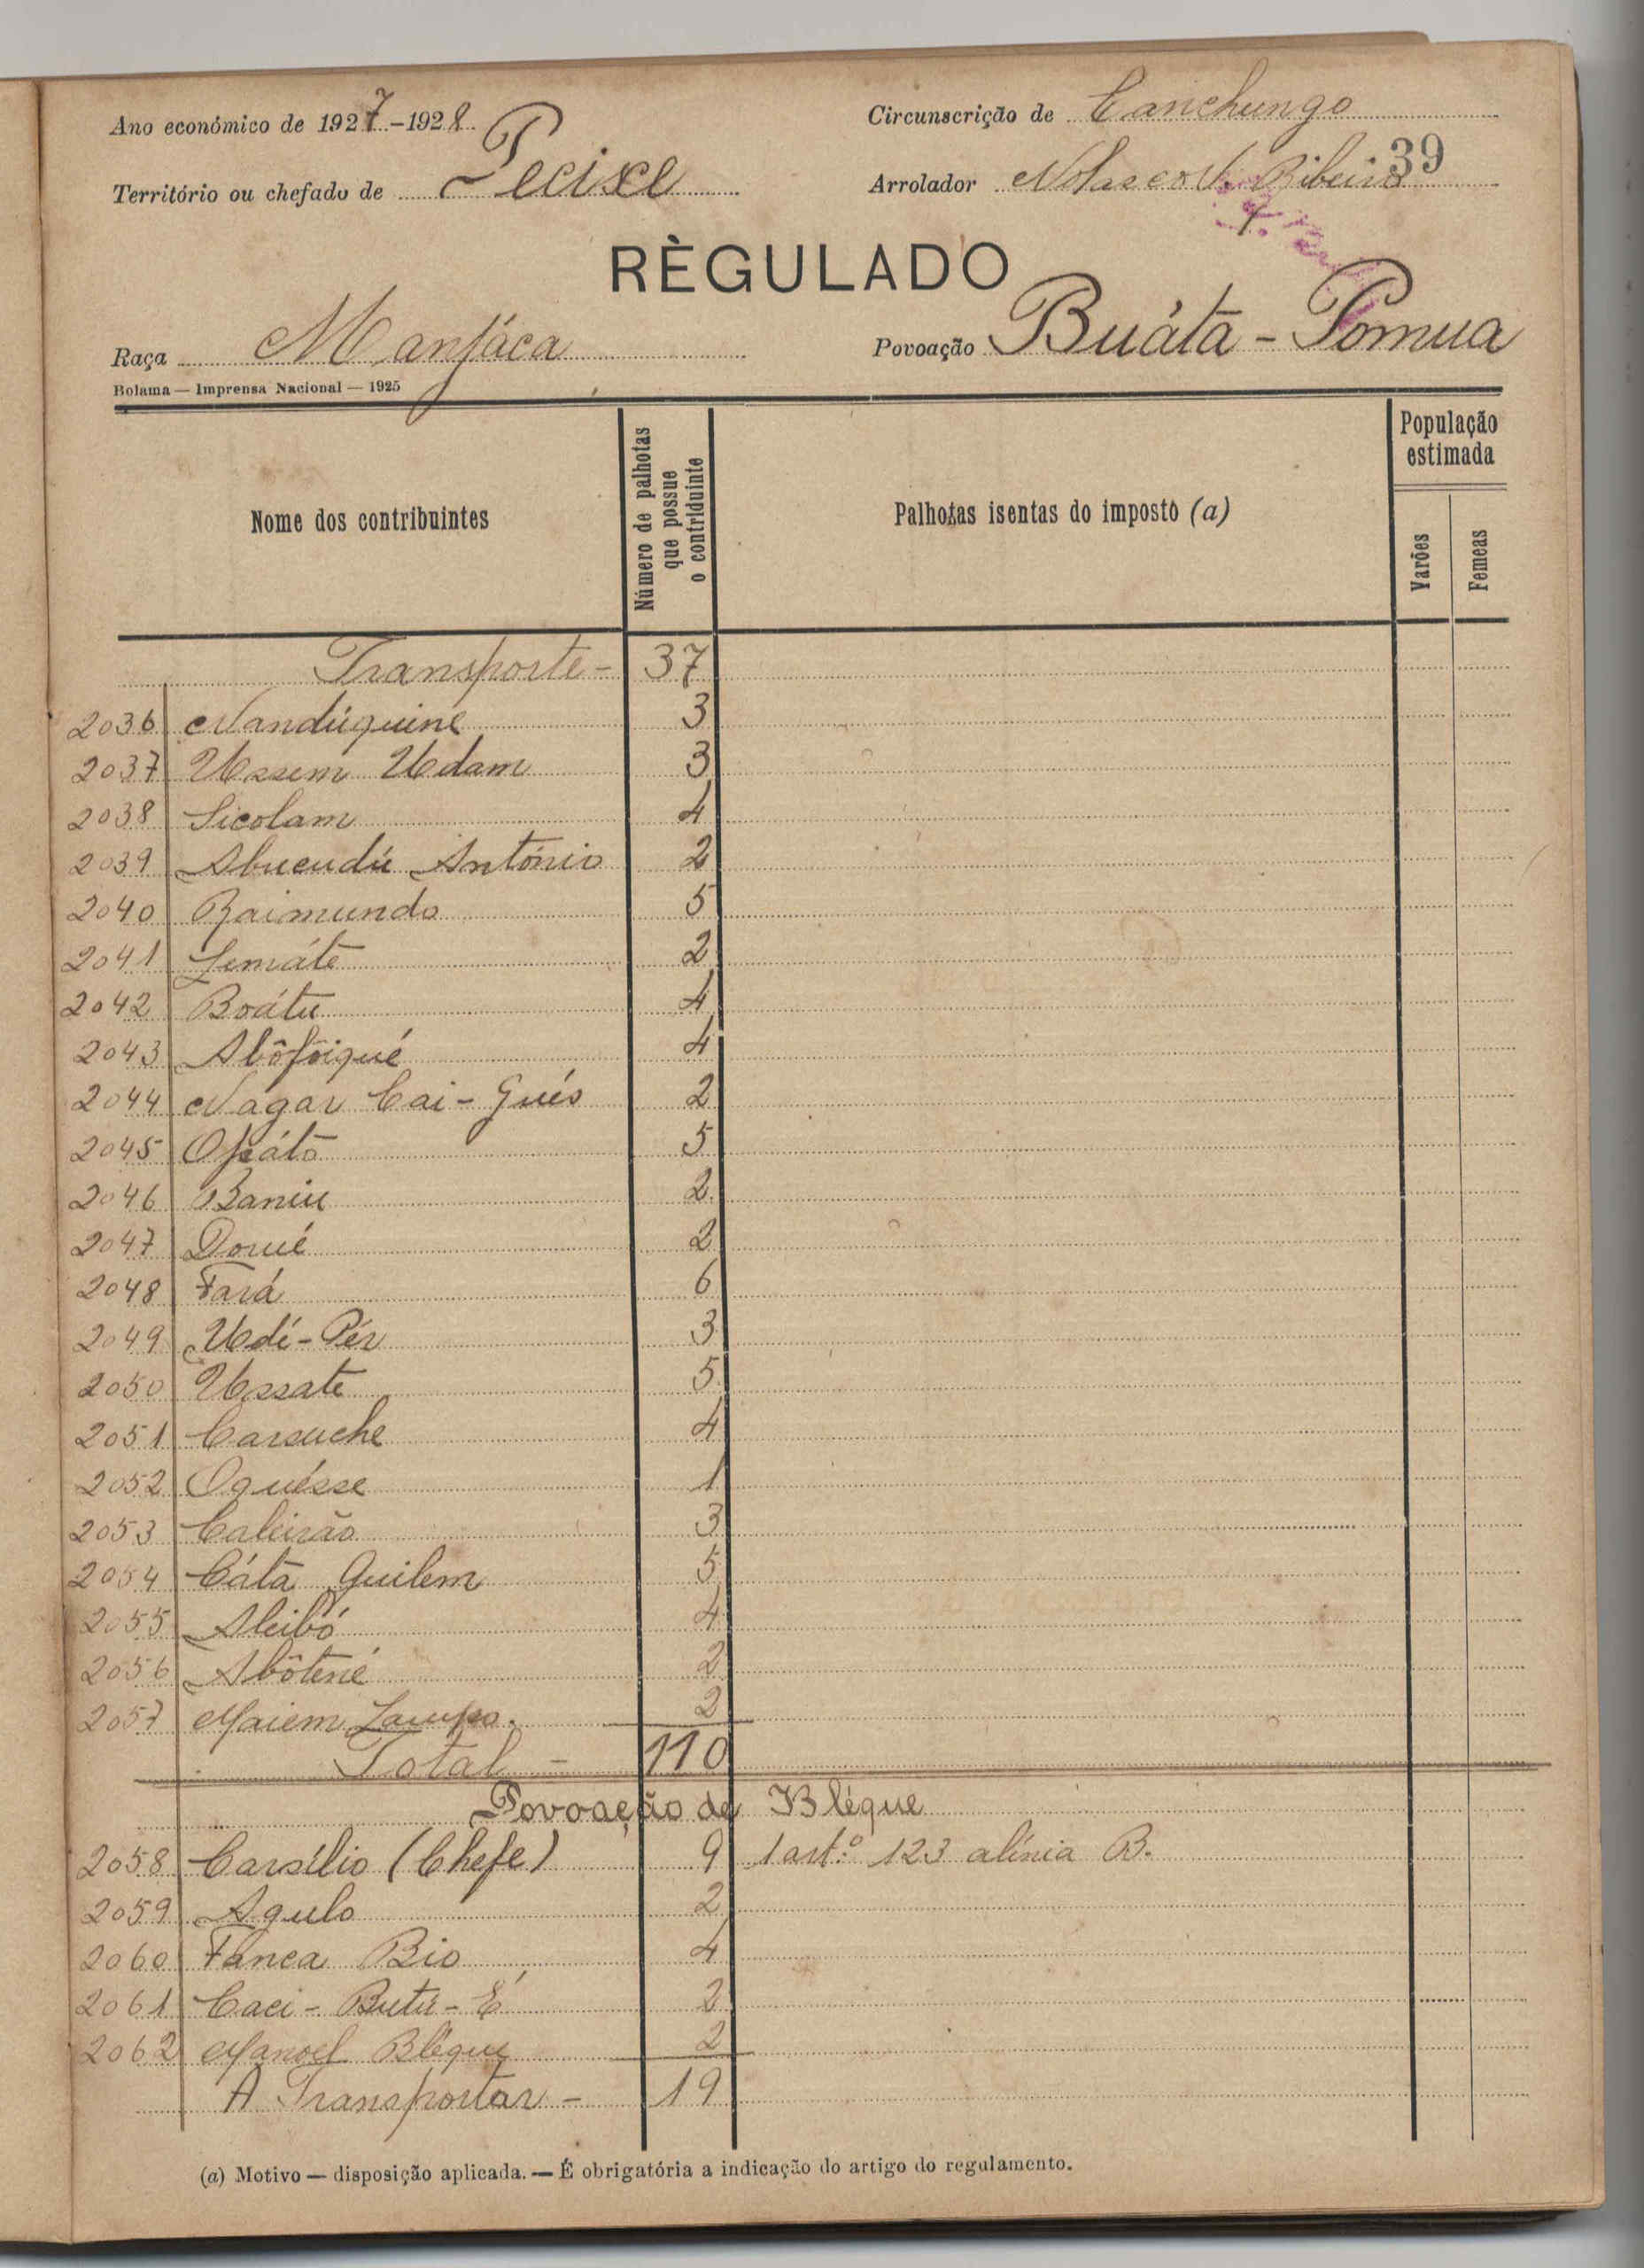 Ano económico de 1927-1928
Circunscrição de Canchungo
39
Território ou chefado de Pecixe
Arrolador Nolasco V. Ribeiro
RÈGULADO
Raça Manjáca
Povoação Buáta - Pomua
Bolama — Imprensa Nacional — 1925
Nome dos contribuintes
Número de palhotas que possue o contriduinte
Palhotas isentas do imposto (a)
População estimada
Varões
Femeas
Transporte - 37
2036 Nandúquine 3
2037 Ussem Udam 3
2038 Sicolam 4
2039 Abucudú António 2
2040 Raimundo 5
2041 Lemáte 2
2042 Boátu 4
2043 Abôfoiqué 4
2044 Nagar Cai - Gués 2
2045 2
2045 5
2046 Baniu 2
2047 Dorué 2
2048 Fará 6
2049 Udé - Pér 3
2050 Ussate 5
2051 Carsuche 4
2052 Oquésse 1
2053 Caleirão 3
2054 Cáta Quilem 5
2055 Aleibó 4
2056 Abôtené 2
2057 Maiem 2
Total - 110
Povoação de Bléque
2058 Carsílio (Chefe) 9 1 art.º 123 alínia B.
2059 Agulo 2
2060 Fanca Bio 4
2061 Caci - Butú - É 2
2062 Manoel Bléque 2
A Transportar - 19
(a) Motivo — disposição aplicada. — É obrigatória a indicação do artigo do regulamento.